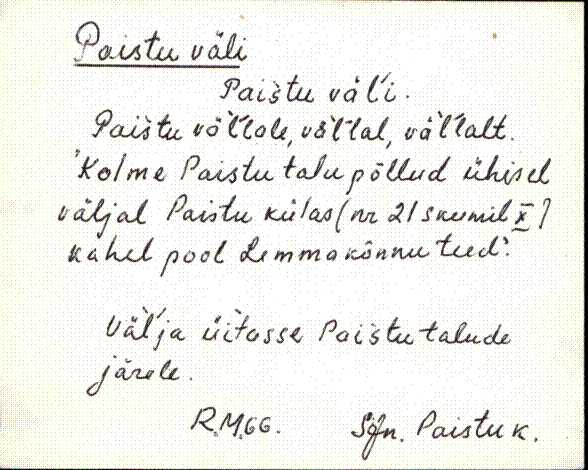 Paistu väli
Paìstu väl'i.
Paìstu väl'l'ale, väl'l'al, väl'l'alt.
"Kolme Paistu talu põllud ühisel
väljal Paistu külas (nr 21 skeemil X)
kahel pool Lemmakõnnu teed".
Väl'ja üitasse Paistu talude
järele.
R.M.66. Sjn. Paistu k.